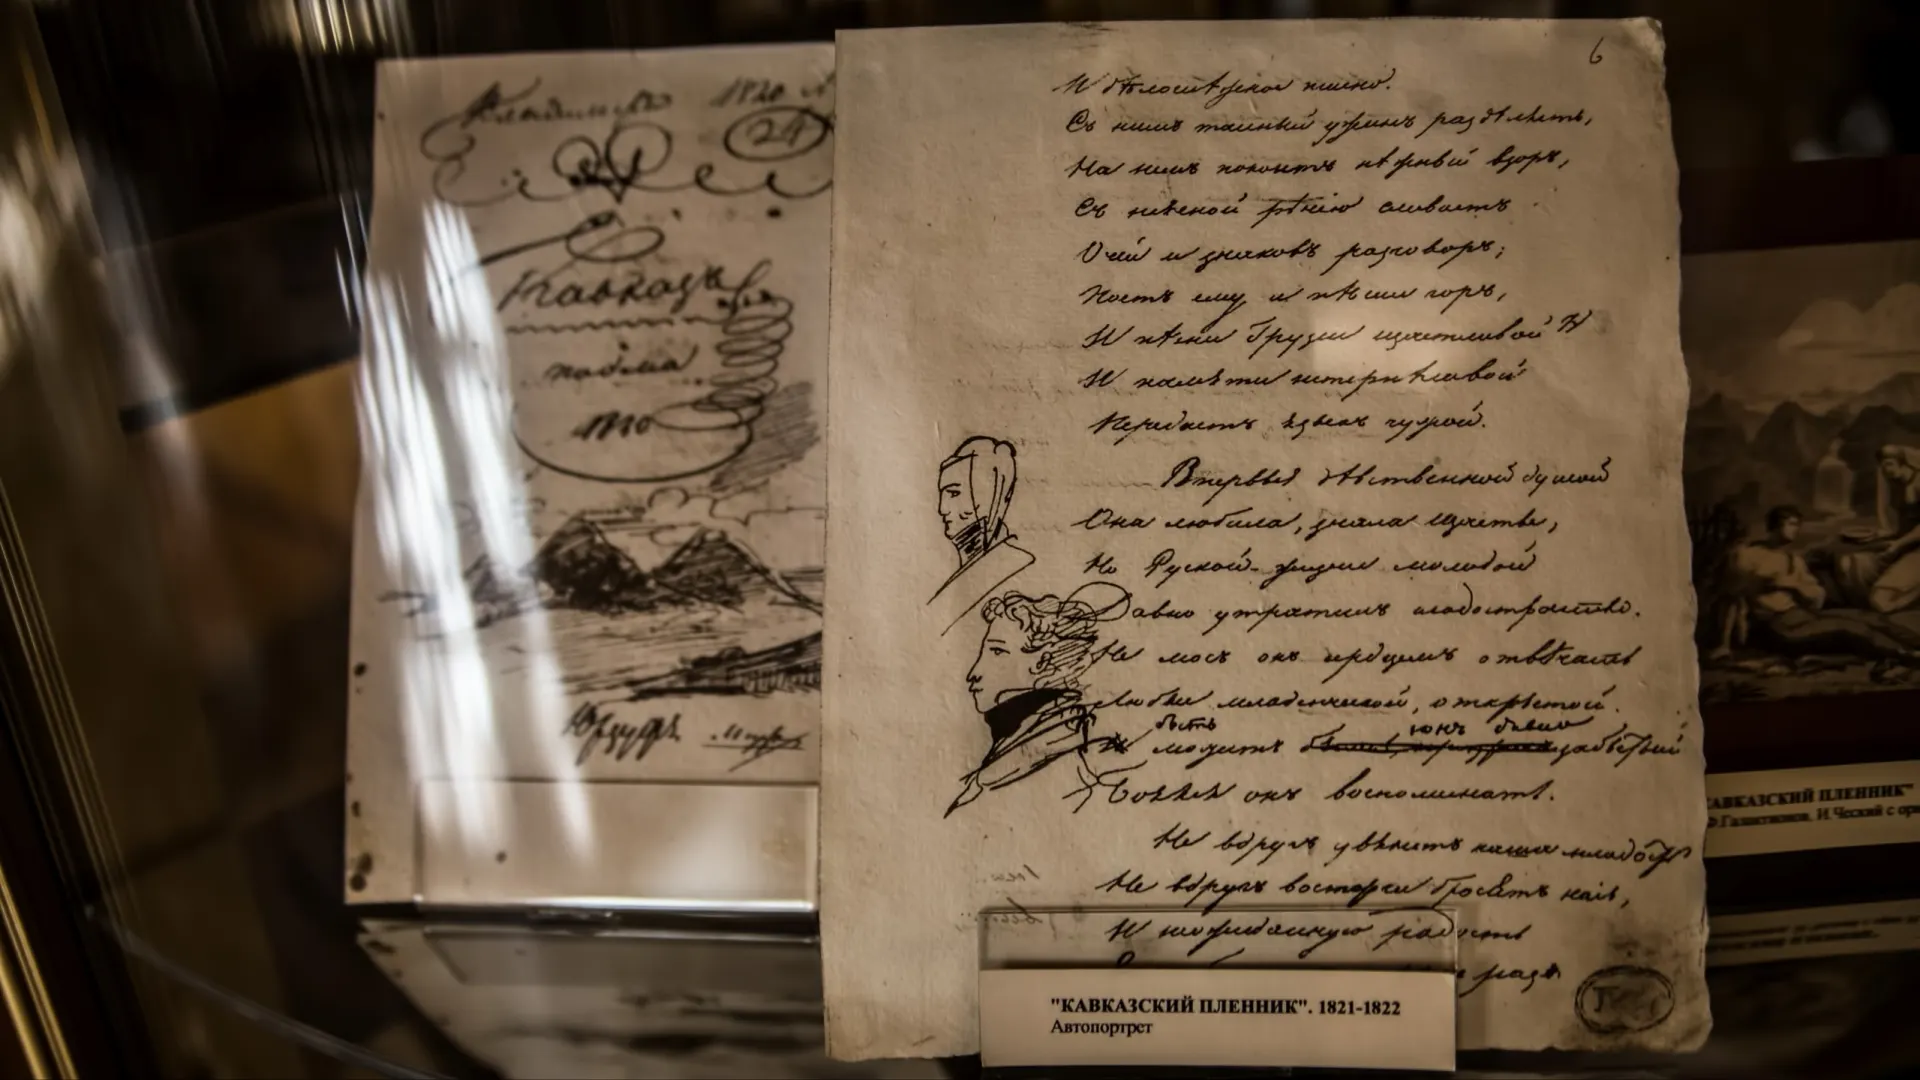 Кавказъ
поэма
1820
Юрзуфъ
6
И бѣлоснѣжное пшено.
Съ нимъ тайный ужинъ раздѣлять,
На нимъ покоитъ нѣжный взоръ,
Съ неясной рѣчію сливаетъ
Очей и знаковъ разговоръ;
Поетъ ему и пѣсни горъ,
И пѣсни Грузіи щастливой
И памяти нетерпѣливой
Передаетъ языкъ чужой.
Впервый дѣвственной душой
Она любила, знала щастье,
Но Руской жизни молодой
Давно утратилъ сладострастье.
Не могъ онъ сердцемъ отвѣчать
Любви младенческой, открытой.
быть сонъ любви
И можетъ забытый
Боялся онъ воспоминать.
Не вдругъ увянетъ наша младость
Не вдругъ восторги бросятъ насъ,
И неожиданную радость
разъ
"КАВКАЗСКИЙ ПЛЕННИК". 1821-1822
Автопортрет
КАВКАЗСКИЙ ПЛЕННИК"